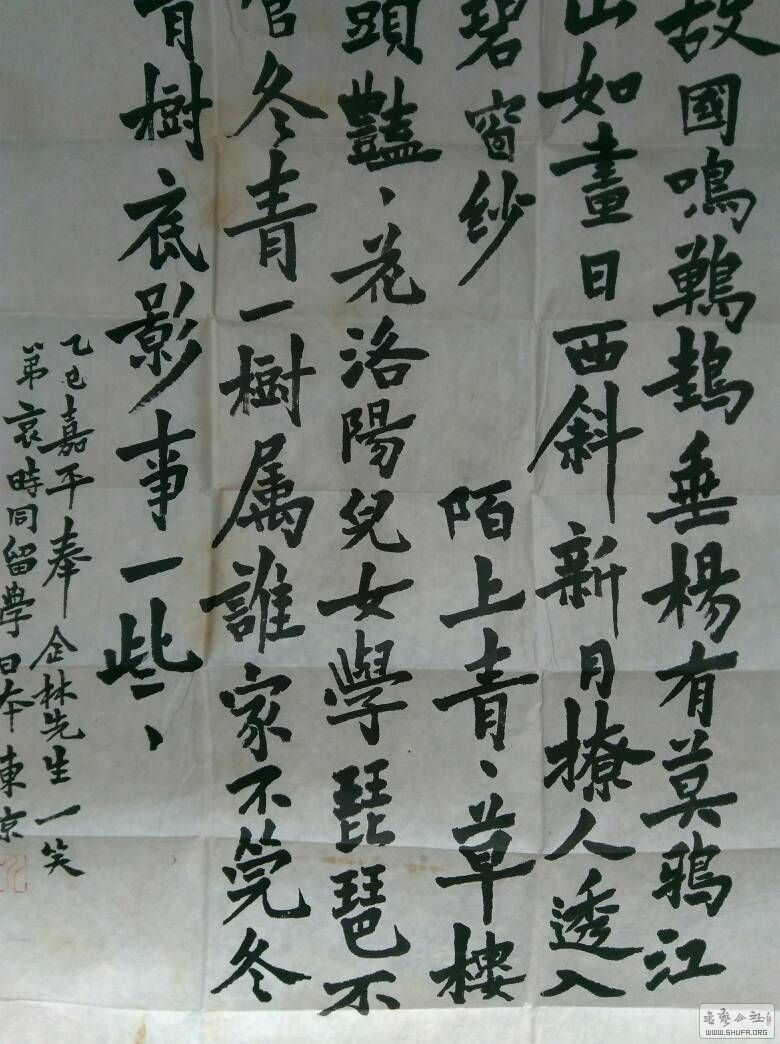 故國鳴鷤垂楊有莫鴉江
山如畫日西斜新月撩人透入
碧窗紗 陌上青、草樓
頭豔、花洛陽兒女學琵琶不
冬青一樹属誰家不筦冬
青樹底影事一些、
乙巳嘉平奉企林先生一笑
弟哀時同留學日本東京
書藝公社
WWW.SHUFA.ORG